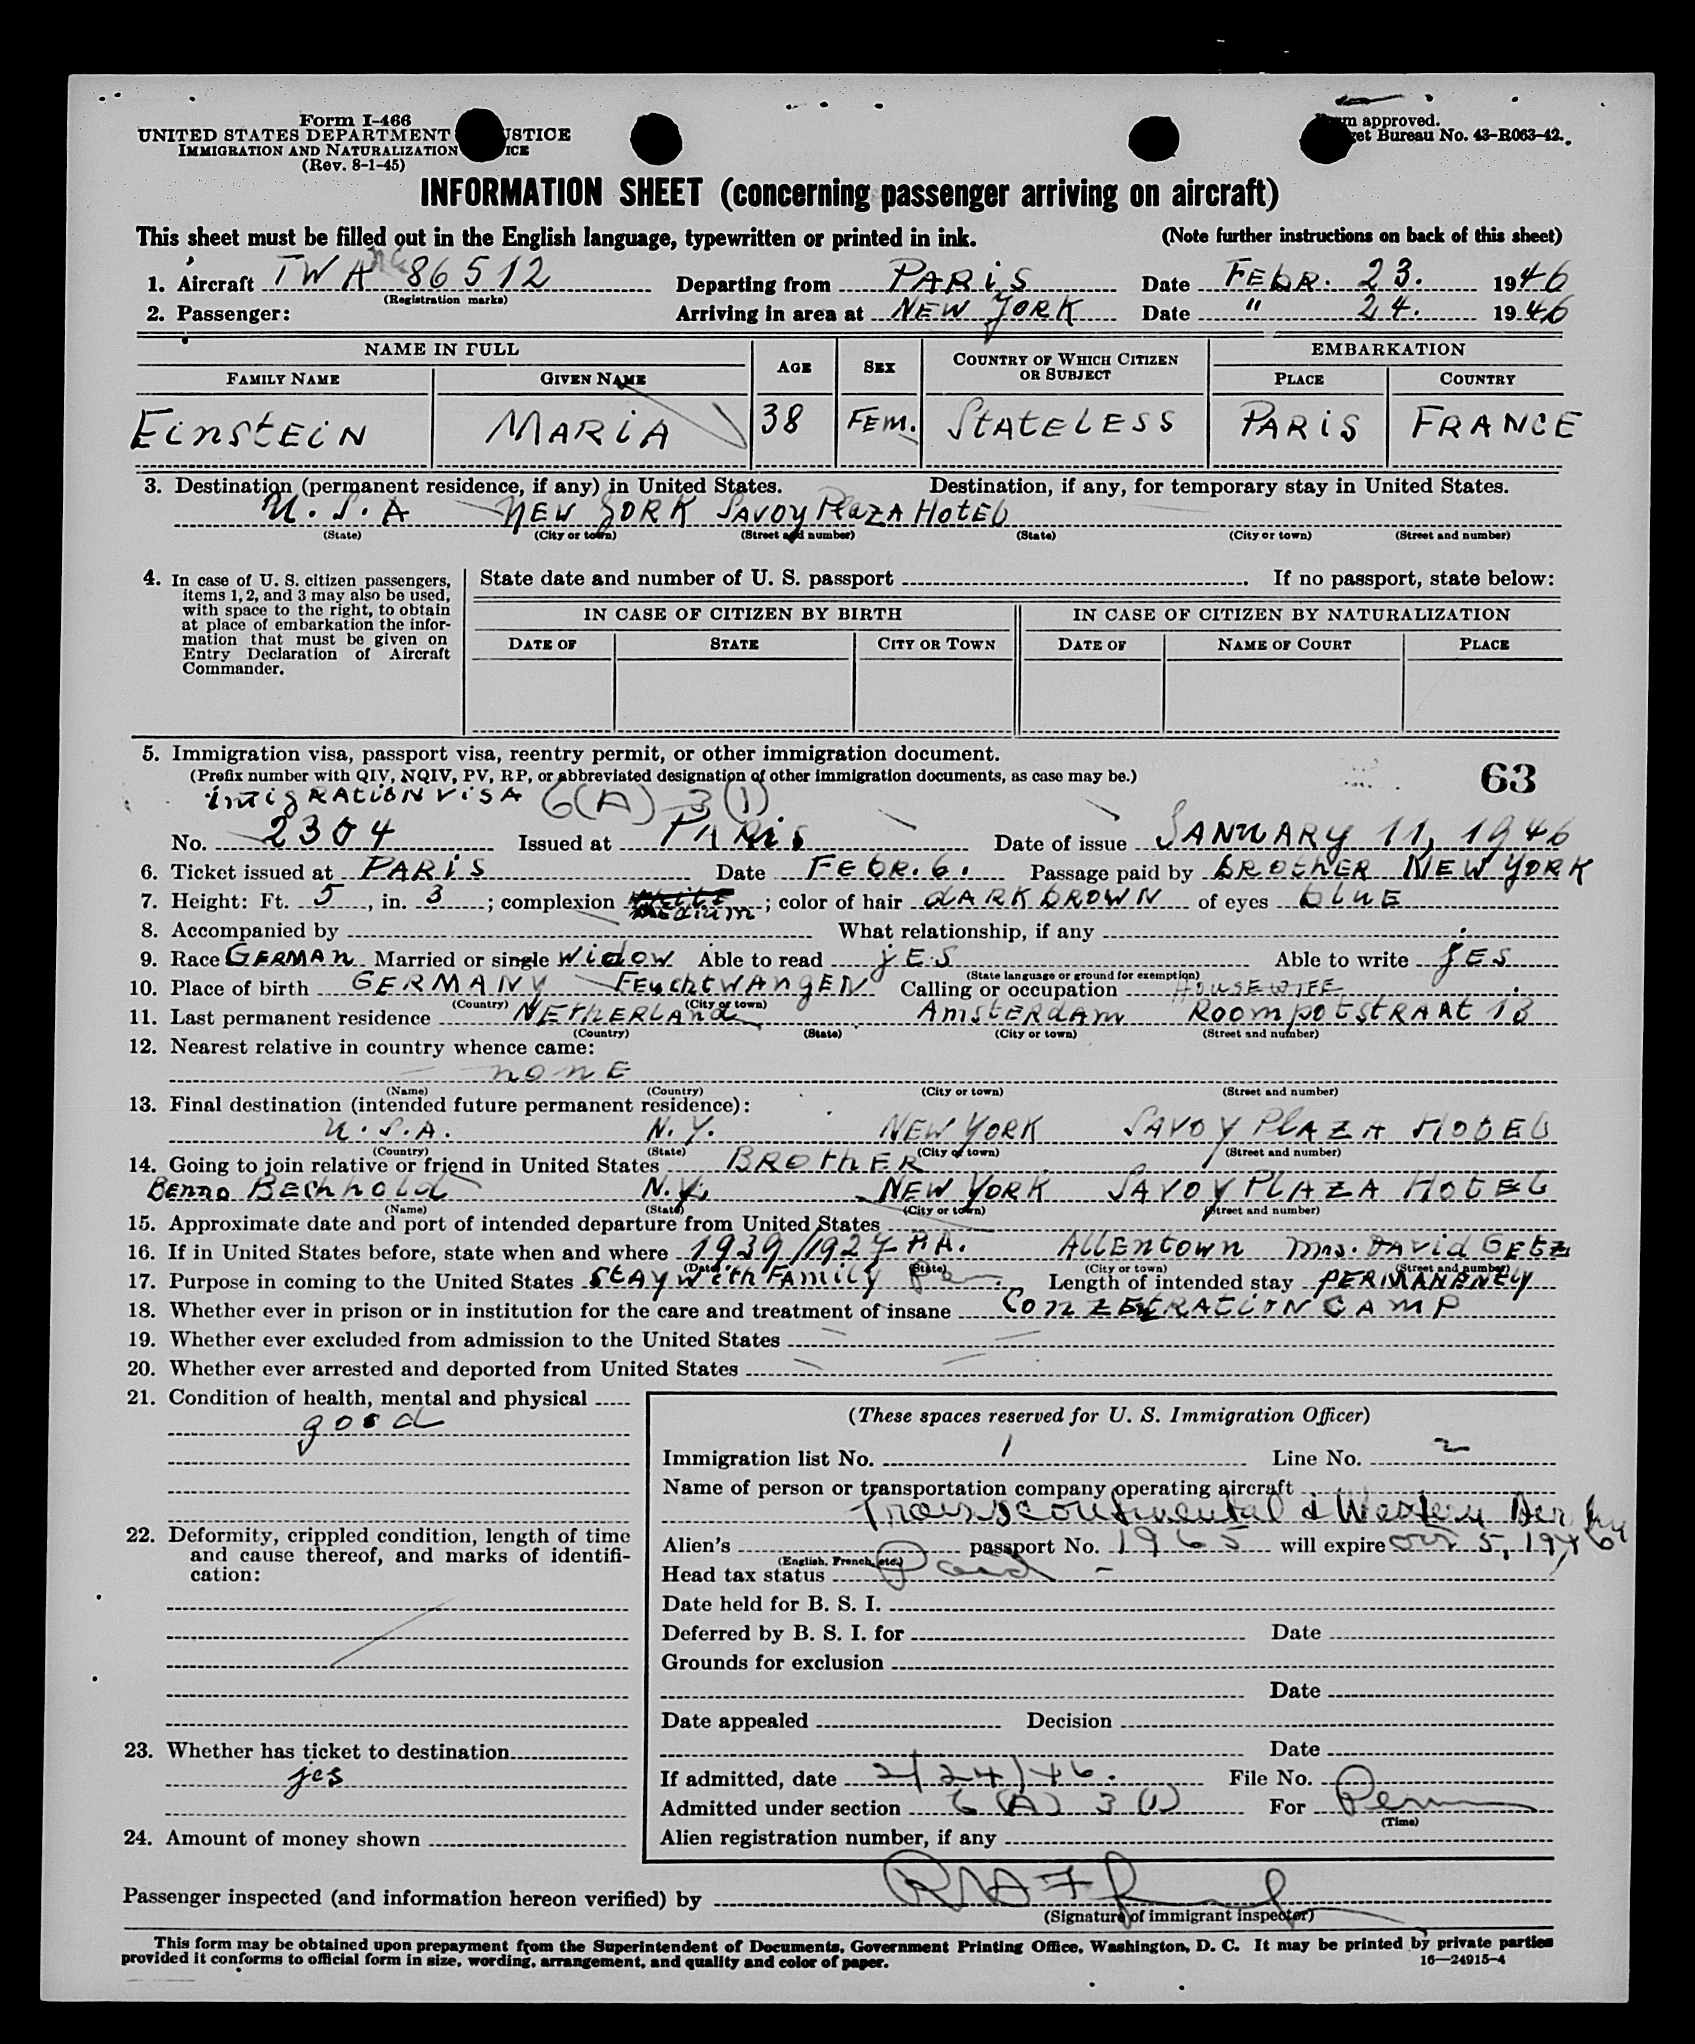 Form I-466
UNITED STATES DEPARTMENT JUSTICE
IMMIGRATION AND NATURALIZATION
(Rev. 8-1-45)
approved.
Bureau No. 43-R063-42.
INFORMATION SHEET (concerning passenger arriving on aircraft)
This sheet must be filled out in the English language, typewritten or printed in ink. (Note further instructions on back of this sheet)
1. Aircraft TWA 86512 Departing from PARiS Date FEbR. 23. 1946
(Registration marks)
2. Passenger: Arriving in area at NEW YORK Date " 24. 1946
NAME IN FULL AGE SEX COUNTRY OF WHICH CITIZEN OR SUBJECT EMBARKATION
FAMILY NAME GIVEN NAME PLACE COUNTRY
EinstEiN MARiA 38 FEM. StAtELESS PARiS FRANCE
3. Destination (permanent residence, if any) in United States. Destination, if any, for temporary stay in United States.
U.S.A NEW YORK SAVOy PlaZA HotEl
(State) (City or town) (Street and number) (State) (City or town) (Street and number)
4. In case of U. S. citizen passengers, items 1, 2, and 3 may also be used, with space to the right, to obtain at place of embarkation the information that must be given on Entry Declaration of Aircraft Commander.
State date and number of U. S. passport . If no passport, state below:
IN CASE OF CITIZEN BY BIRTH IN CASE OF CITIZEN BY NATURALIZATION
DATE OF STATE CITY OR TOWN DATE OF NAME OF COURT PLACE
5. Immigration visa, passport visa, reentry permit, or other immigration document.
(Prefix number with QIV, NQIV, PV, RP, or abbreviated designation of other immigration documents, as case may be.) 63
imigRAtioN ViSA 6(A) 3(1)
No. 2304 Issued at PARis Date of issue JANuARy 11, 1946
6. Ticket issued at PARiS Date FEbR. 6. Passage paid by bROthER NEW YORK
7. Height: Ft. 5, in. 3; complexion medium; color of hair dARK bROWN of eyes bluE
8. Accompanied by What relationship, if any
9. Race GERMAn Married or single Widow Able to read jES Able to write jES
(State language or ground for exemption)
10. Place of birth GERMANY FEuchtWANgEN Calling or occupation HOUSEWIFE
(Country) (City or town)
11. Last permanent residence NEthERLANd AmstERdAm RoompotstRAAt 13
(Country) (State) (City or town) (Street and number)
12. Nearest relative in country whence came:
nonE
(Name) (Country) (City or town) (Street and number)
13. Final destination (intended future permanent residence):
U.S.A. N.Y. NEW YORK SAVOY PlAZA HOtEl
(Country) (State) (City or town) (Street and number)
14. Going to join relative or friend in United States BROthER
Benno BEchhold N.Y. NEW YORK SAVOY PlAZA HOtEl
(Name) (State) (City or town) (Street and number)
15. Approximate date and port of intended departure from United States
16. If in United States before, state when and where 1939/1927 PA. AllEntown Mrs. DAVid GEtz
(Date) (State) (City or town) (Street and number)
17. Purpose in coming to the United States StAy With FAmily Length of intended stay PERMANENtly
18. Whether ever in prison or in institution for the care and treatment of insane ConzEtRAtioN CAMP
19. Whether ever excluded from admission to the United States
20. Whether ever arrested and deported from United States
21. Condition of health, mental and physical
good
22. Deformity, crippled condition, length of time and cause thereof, and marks of identification:
23. Whether has ticket to destination
jes
24. Amount of money shown
(These spaces reserved for U. S. Immigration Officer)
Immigration list No. 1 Line No. 2
Name of person or transportation company operating aircraft
Transcontinental & Western Air
Alien's passport No. 1965 will expire Oct 5, 1946
(English, French, etc.)
Head tax status Paid
Date held for B. S. I.
Deferred by B. S. I. for Date
Grounds for exclusion
Date
Date appealed Decision
Date
If admitted, date 2/24/46. File No.
Admitted under section 6(A) 3(1) For Perm
(Time)
Alien registration number, if any
Passenger inspected (and information hereon verified) by
(Signature of immigrant inspector)
This form may be obtained upon prepayment from the Superintendent of Documents, Government Printing Office, Washington, D. C. It may be printed by private parties
provided it conforms to official form in size, wording, arrangement, and quality and color of paper. 16—24915-4